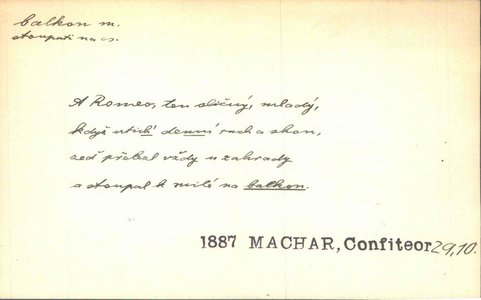 balkon m.
stoupati na cs.
A Romeo, ten sličný, mladý,
když utichl denní ruch a shon,
zeď přelezl vždy u zahrady
a stoupal k milé na balkon.
1887 MACHAR, Confiteor 29,10.